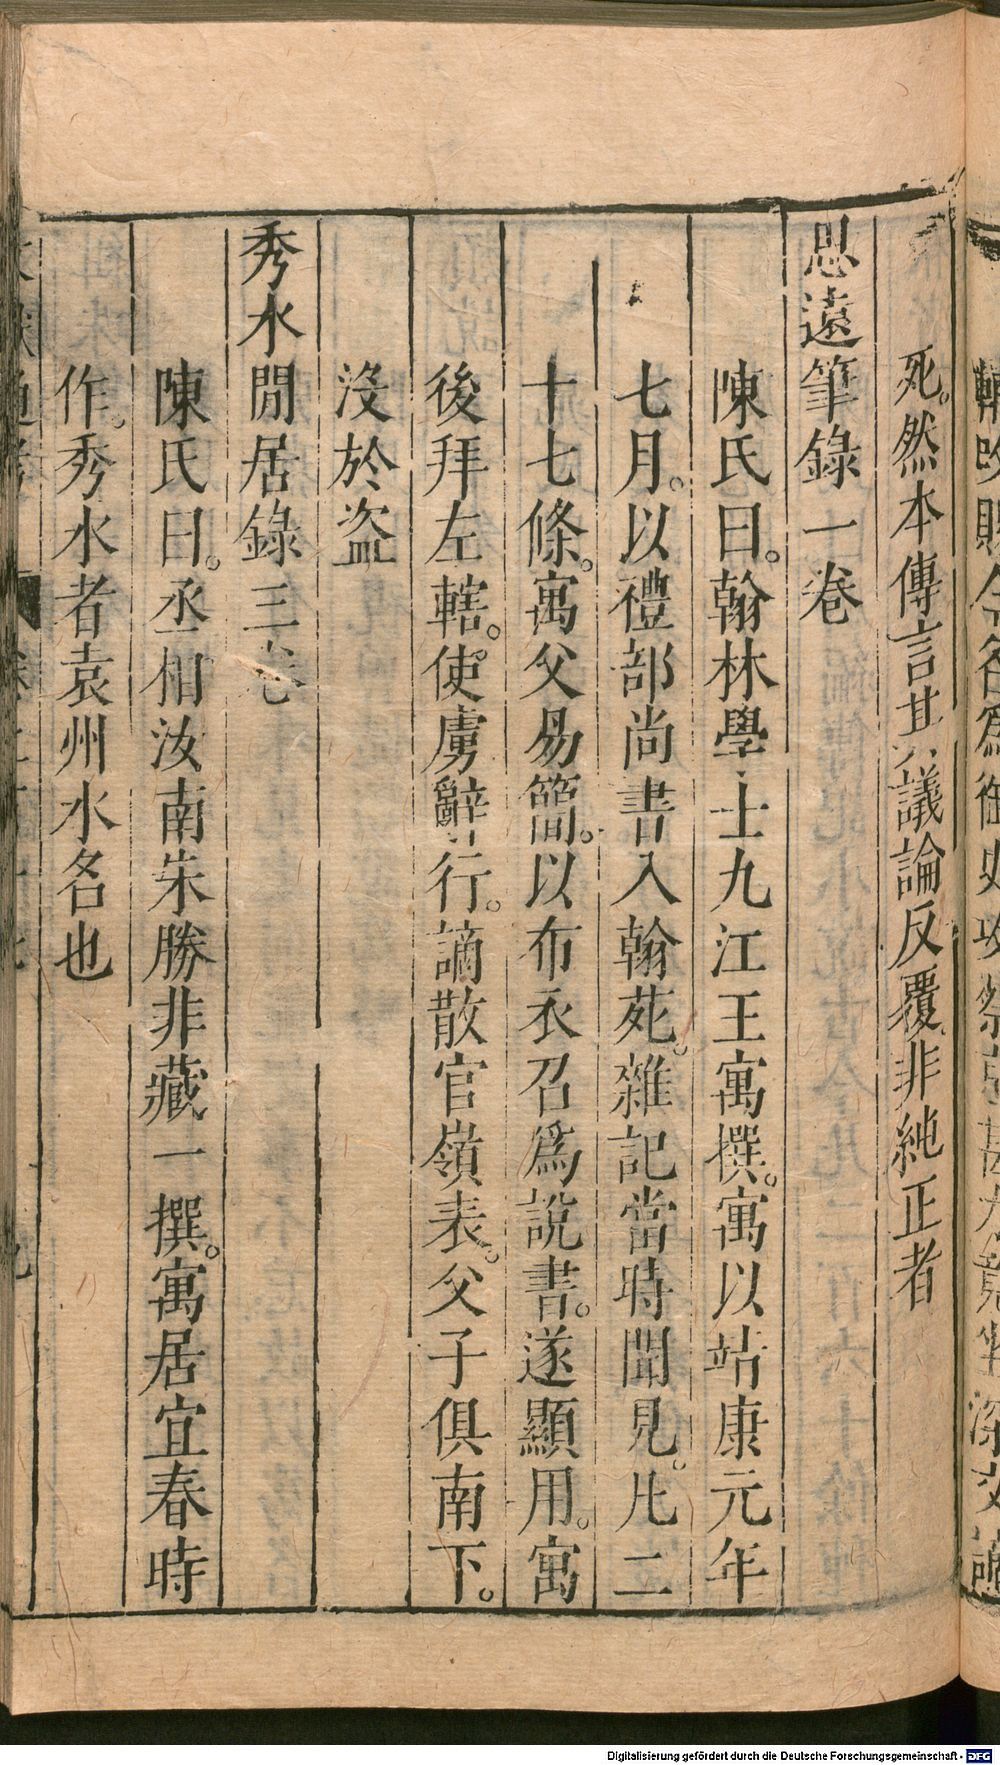 死。然本傳言其議論反覆。非純正者
思遠筆錄一卷
陳氏曰。翰林學士九江王寓撰。寓以站康元年
七月。以禮部尚書入翰苑。雜記當時聞見。凡二
十七條。寓父易簡。以布衣召為說書。遂顯用。寓
後拜左轄。使虜辭行。謫散官嶺表。父子俱南下。
沒於盜
秀水閒居錄三卷
陳氏曰。丞相汝南朱勝非藏一撰。寓居宜春時
作。秀水者袁州水名也
Digitalisierung gefördert durch die Deutsche Forschungsgemeinschaft - DFG